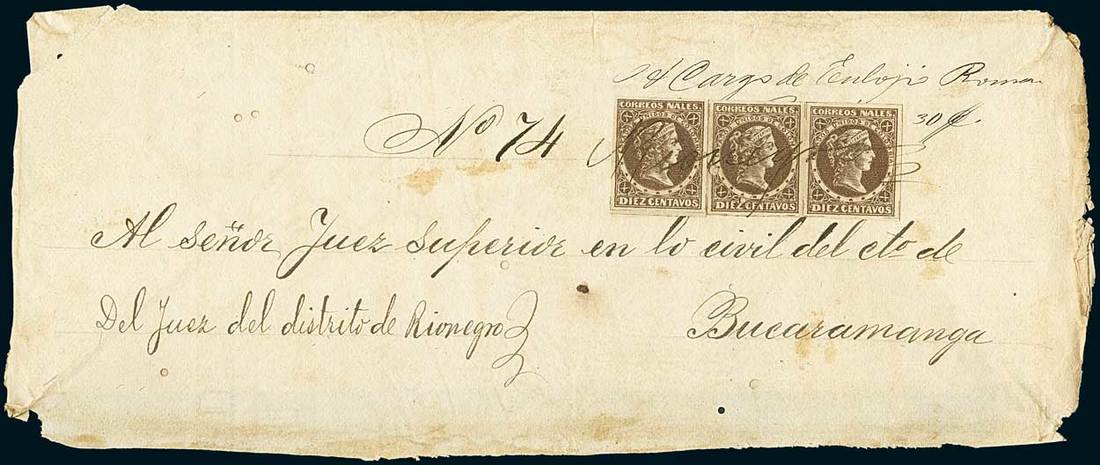 A Cargo de Eulojio Roma
No 74
30 ₡.
CORREOS NALES.
DIEZ CENTAVOS
CORREOS NALES.
DIEZ CENTAVOS
CORREOS NALES.
DIEZ CENTAVOS
Al señor Juez superior en lo civil del cto de
Del Juez del distrito de Rionegro
Bucaramanga